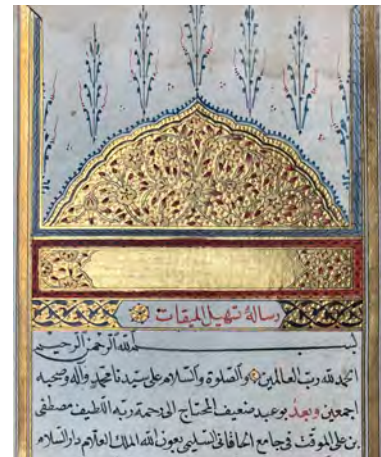 رسالة تسهيل الميقات
بسم الله الرحمن الرحيم
الحمد لله رب العالمين والصلوة والسلام على سيدنا محمد وآله وصحبه
اجمعين وبعد بو عبد ضعيف المحتاج الى رحمة ربه اللطيف مصطفى
بن على الموقت فى جامع الخاقانى السليمى بعون الله الملك العلام دار السلام